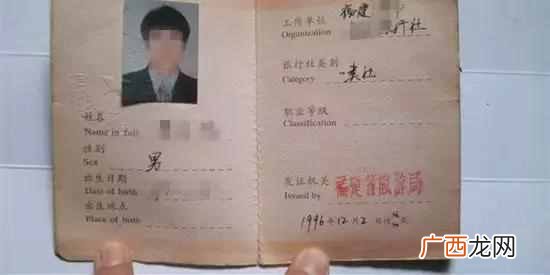 姓名
Name in full
性别
Sex 男
出生日期
Date of birth
出生地点
Place of birth
工作单位 福建
Organization 行社
旅行社类别
Category 一类社
职业等级
Classification
发证机关
Issued by 福建省旅游局
1996年12月2
广西龙网